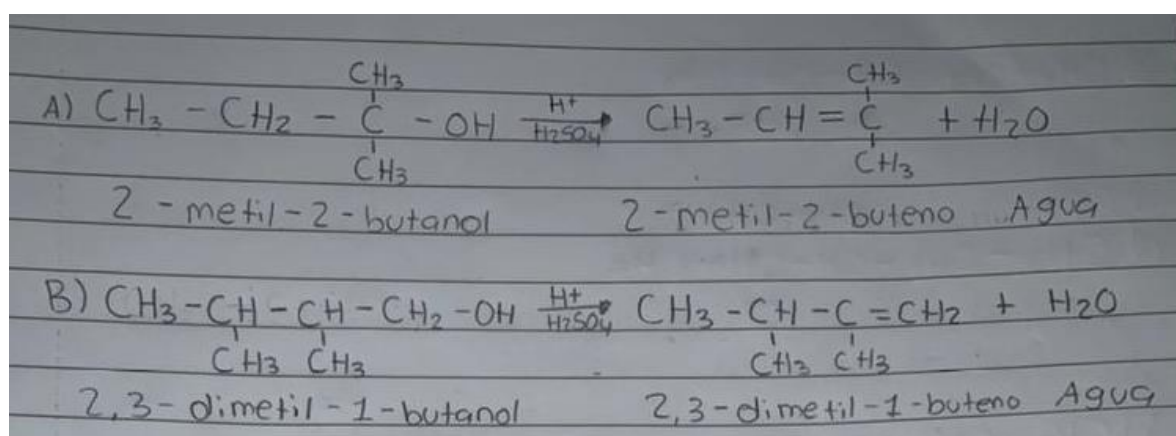 CH3 CH3
A) CH3 - CH2 - C - OH H+ H2SO4 CH3 - CH = C + H2O
CH3 CH3
2 - metil - 2 - butanol 2 - metil - 2 - buteno Agua
B) CH3 - CH - CH - CH2 - OH H+ H2SO4 CH3 - CH - C = CH2 + H2O
CH3 CH3 CH3 CH3
2,3 - dimetil - 1 - butanol 2,3 - dimetil - 1 - buteno Agua